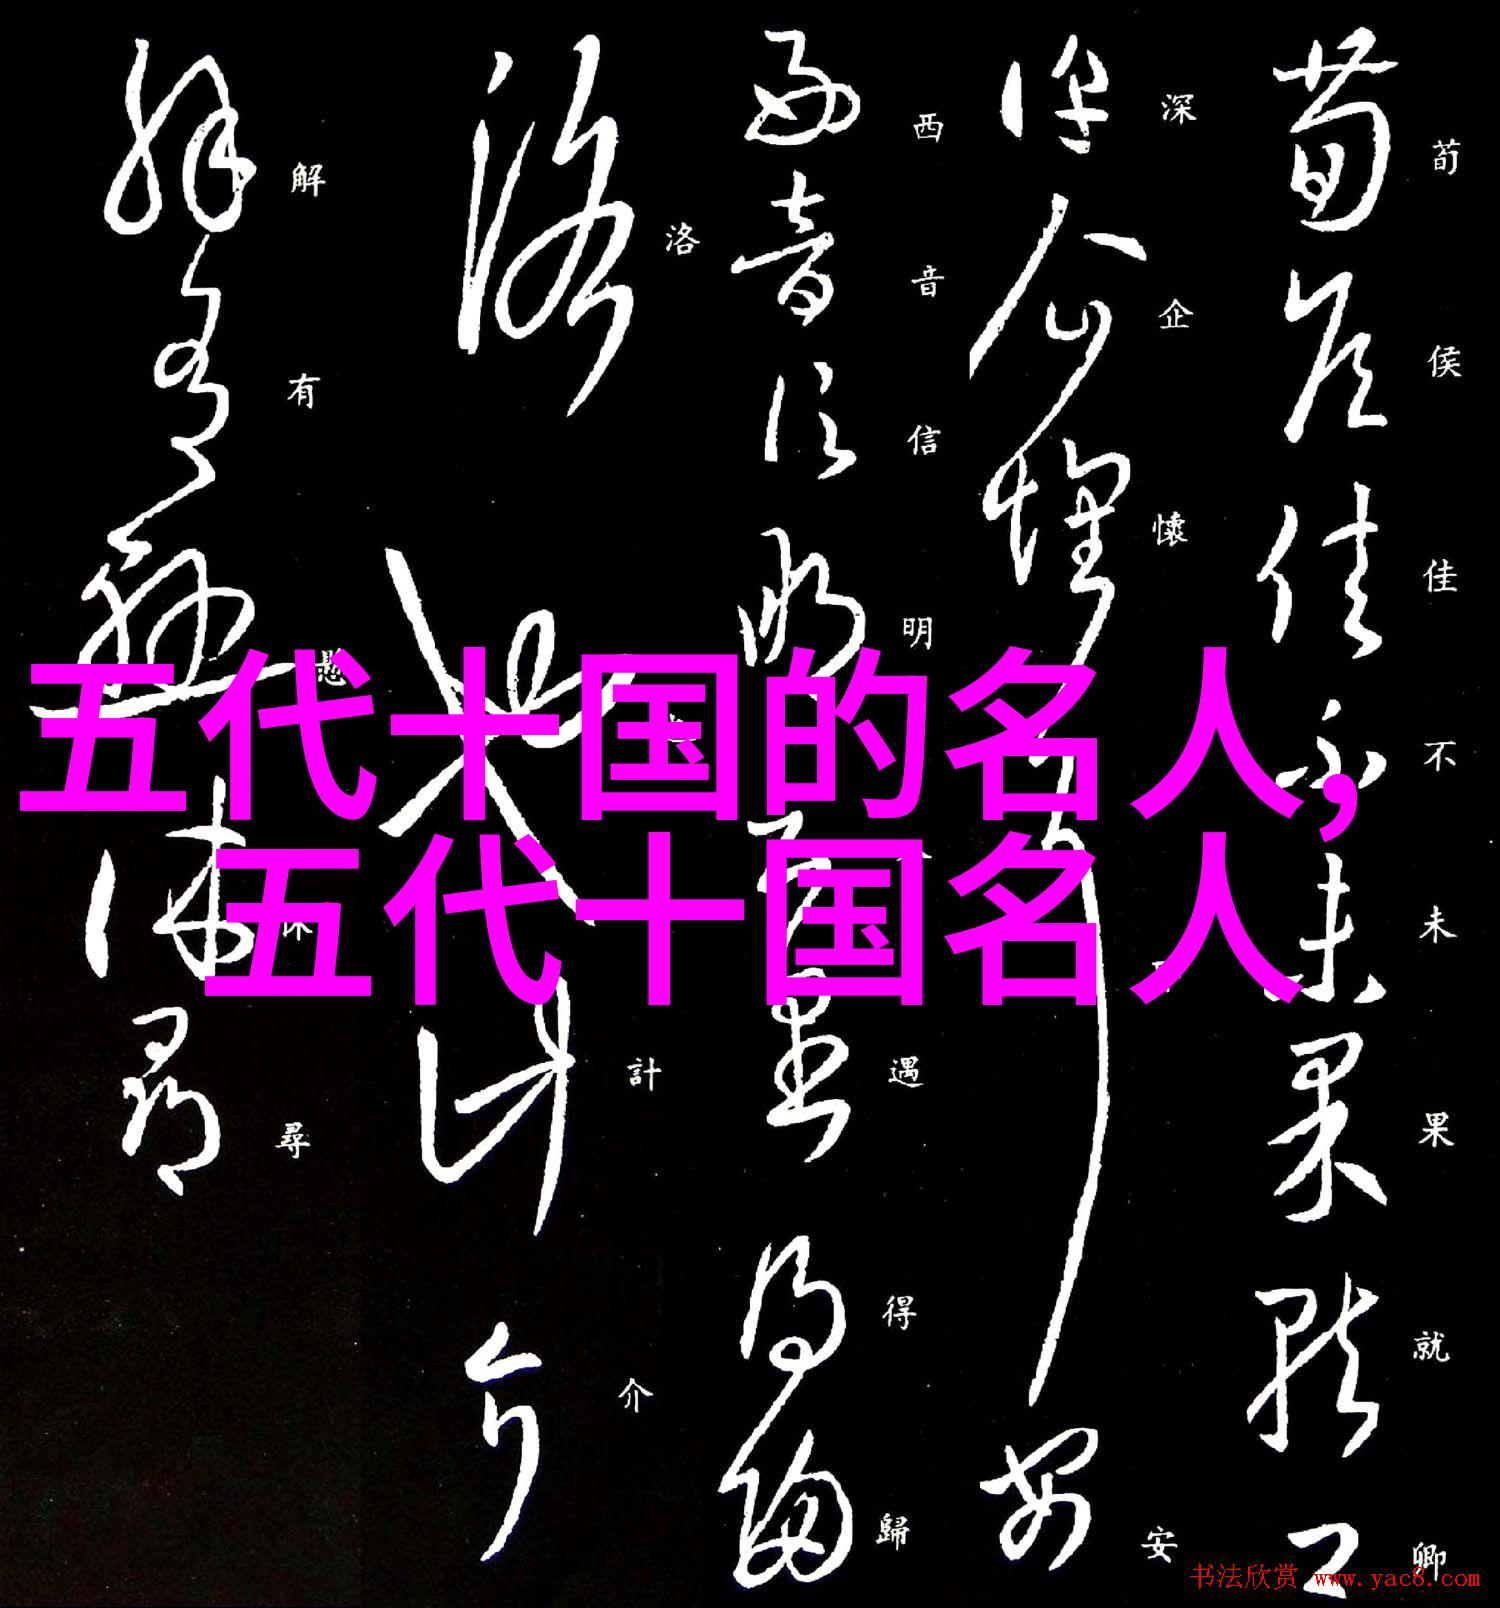 荀侯佳不未果就卿
深企懷安
西音信明遇得歸
洛計介
解有懸休尋
五代十国的名人,
五代十国名人
书法欣赏 www.yac8.com